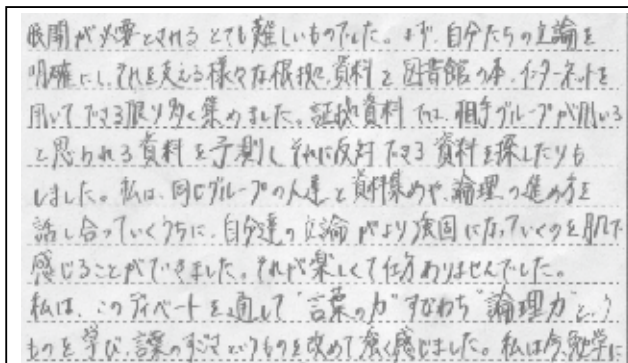 展開が必要とされるとても難しいものでした。まず、自分たちの立論を
明確にし、それを支える様々な根拠、資料を図書館の本、インターネットを
用いてできる限り多く集めました。証拠資料では、相手グループが用いる
と思われる資料を予測しそれに反対できる資料を探したりも
しました。私は、同じグループの人達と資料集めや、論理の進め方を
話し合っていくうちに、自分達の立論がより強固になっていくのを肌で
感じることができました。それが楽しくて仕方ありませんでした。
私は、このディベートを通して"言葉の力"すなわち"論理力"という
ものを学び、言葉のすごさというものを改めて強く感じました。私は今勉学に